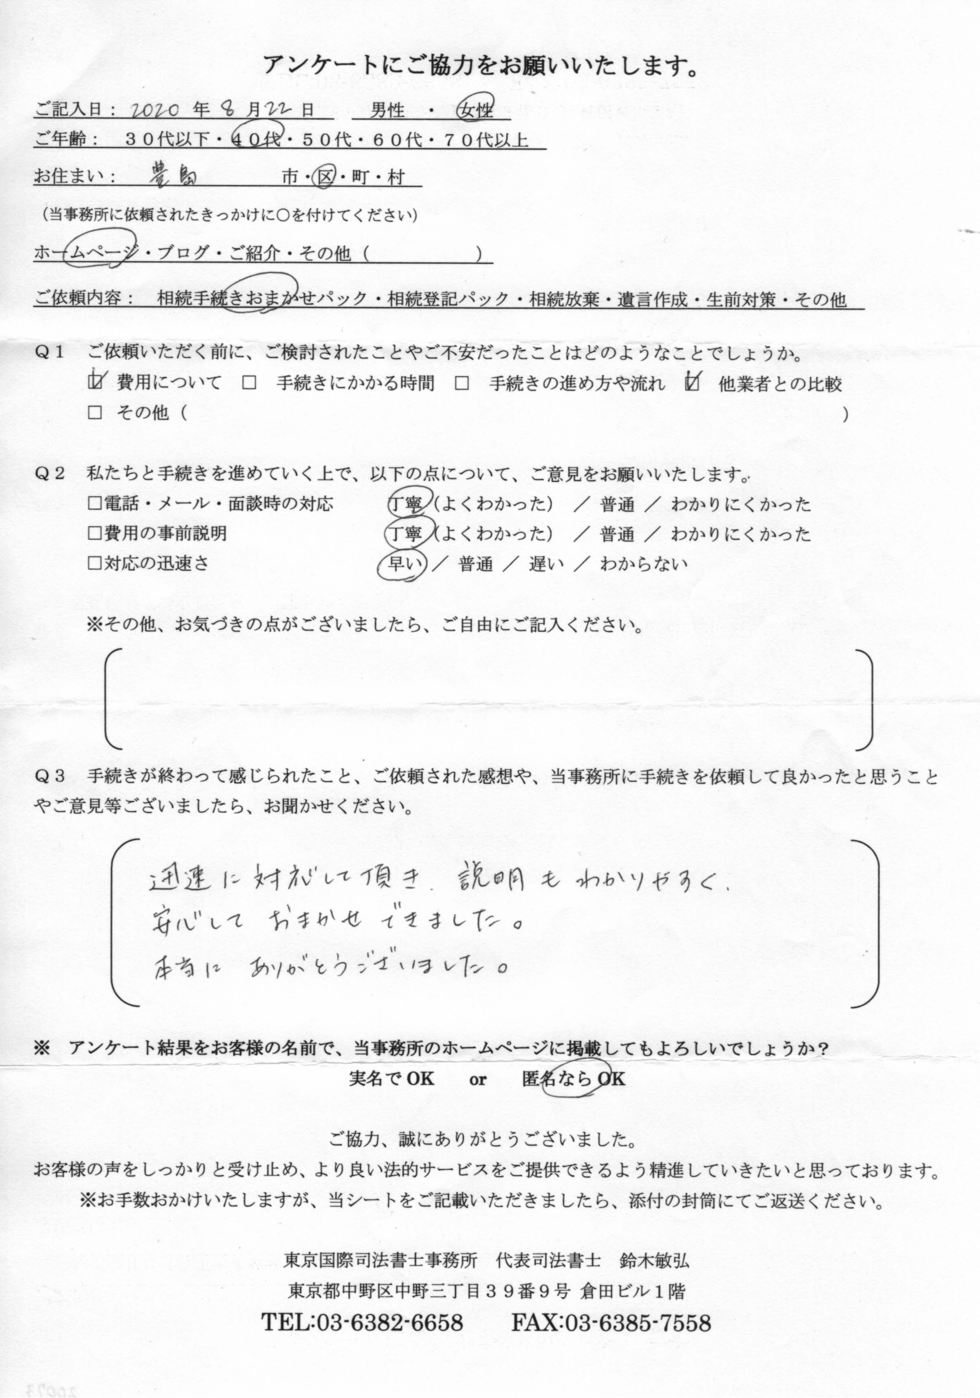 アンケートにご協力をお願いいたします。
ご記入日： 2020 年 8 月 22 日　男性 ・ 女性
ご年齢： ３０代以下・４０代・５０代・６０代・７０代以上
お住まい： 豊島 市・区・町・村
（当事務所に依頼されたきっかけに○を付けてください）
ホームページ・ブログ・ご紹介・その他（　　　　　　）
ご依頼内容： 相続手続きおまかせパック・相続登記パック・相続放棄・遺言作成・生前対策・その他
Ｑ１　ご依頼いただく前に、ご検討されたことやご不安だったことはどのようなことでしょうか。
☑ 費用について　□ 手続きにかかる時間　□ 手続きの進め方や流れ　☑ 他業者との比較
□ その他（　　　　　　）
Ｑ２　私たちと手続きを進めていく上で、以下の点について、ご意見をお願いいたします。
□電話・メール・面談時の対応　丁寧（よくわかった） ／ 普通 ／ わかりにくかった
□費用の事前説明　丁寧（よくわかった） ／ 普通 ／ わかりにくかった
□対応の迅速さ　早い ／ 普通 ／ 遅い ／ わからない
※その他、お気づきの点がございましたら、ご自由にご記入ください。
Ｑ３　手続きが終わって感じられたこと、ご依頼された感想や、当事務所に手続きを依頼して良かったと思うこと
やご意見等ございましたら、お聞かせください。
迅速に対応して頂き、説明もわかりやすく、
安心しておまかせできました。
本当にありがとうございました。
※　アンケート結果をお客様の名前で、当事務所のホームページに掲載してもよろしいでしょうか？
実名でOK　or　匿名ならOK
ご協力、誠にありがとうございました。
お客様の声をしっかりと受け止め、より良い法的サービスをご提供できるよう精進していきたいと思っております。
※お手数おかけいたしますが、当シートをご記載いただきましたら、添付の封筒にてご返送ください。
東京国際司法書士事務所　代表司法書士　鈴木敏弘
東京都中野区中野三丁目３９番９号 倉田ビル１階
TEL:03-6382-6658　FAX:03-6385-7558